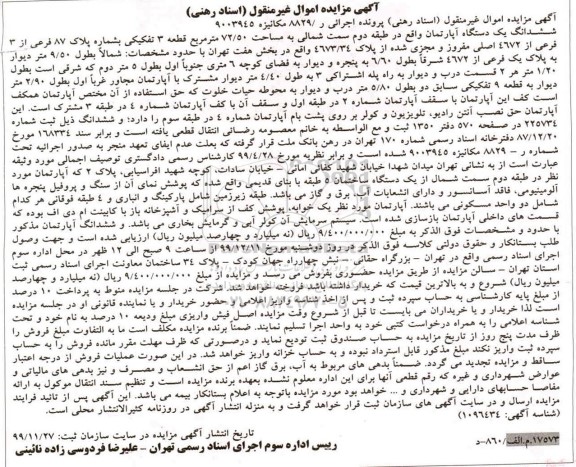 آگهی مزایده اموال غیرمنقول (اسناد رهنی)
آگهی مزایده اموال غیرمنقول (اسناد رهنی) پرونده اجرائی ر /۸۸۲۹ مکانیزه ۹۰۰۳۹۴۵
ششدانگ یک دستگاه آپارتمان واقع در طبقه دوم سمت شمالی به مساحت ۷۲/۵۰ مترمربع قطعه ۳ تفکیکی بشماره پلاک ۸۷ فرعی از ۳
فرعی از ۴۶۷۲ اصلی مفروز و مجزی شده از پلاک ۴۶۷۳/۳۴ واقع در بخش هفت تهران با حدود مشخصات: شمالاً بطول ۹/۵۰ متر دیوار
به پلاک یک فرعی از ۴۶۷۲ شرقاً بطول ۶/۶۰ به پنجره و دیوار به فضای کوچه ۶ متری جنوباً اول بطول ۵ متر دوم که شرقی است بطول
۱/۲۰ متر هر ۲ قسمت درب و دیوار به راه پله اشتراکی ۳ به طول ۴/۴۰ متر دیوار مشترک با آپارتمان مجاور غرباً اول بطول ۲/۹۰ متر
دیوار به قطعه ۹ تفکیکی سابق دو بطول ۵/۸۰ متر درب و دیوار به محوطه حیاط خلوت که حق استفاده از آن مختص آپارتمان همکف
است کف این آپارتمان با سقف آپارتمان شماره ۲ در طبقه اول و سقف آن با کف آپارتمان شماره ۴ در طبقه ۳ مشترک است. این
آپارتمان حق نصب آنتن رادیو، تلویزیون و کولر بر روی پشت بام آپارتمان شماره ۴ در طبقه سوم را دارد؛ و ششدانگ ذیل ثبت شماره
۲۲۵۷۳۴ در صفحه ۵۷۰ دفتر ۱۳۵۰ ثبت و مع الواسطه به خانم معصومه رضائی انتقال قطعی یافته است و برابر سند ۱۶۸۳۳۴ مورخ
۸۷/۱۲/۲۰ دفترخانه اسناد رسمی شماره ۱۷۰ تهران در رهن بانک ملت قرار گرفته که بعلت عدم ایفای تعهد منجر به صدور اجرائیه تحت
شماره ر – ۸۸۲۹ مکانیزه ۹۰۰۳۹۴۵ شده است. و برابر نظریه مورخ ۹۹/۴/۲۸ کارشناس رسمی دادگستری توصیف اجمالی مورد وثیقه
عبارت است از به نشانی تهران میدان شهدا خیابان شهید کفائی امانی – خیابان سادات، کوچه شهید افراسیابی، پلاک ۲ که آپارتمان مورد
نظر در طبقه دوم سمت شمال از یک دستگاه ساختمان ۴ طبقه با بنای قدیمی واقع شده، که پوشش نمای آن از سنگ و پروفیل پنجره ها
آلومینیومی، فاقد آسانسور و دارای انشعابات آب، برق و گاز می باشد. طبقه زیرزمین شامل پارکینگ و انباری و ۴ طبقه فوقانی هر کدام
شامل دو واحد مسکونی می باشند. آپارتمان مورد نظر یک خوابه، پوشش کف از سرامیک و آشپزخانه باز با کابینت ام دی اف بوده که
قسمت های داخلی آپارتمان بازسازی شده است. سیستم سرمایش آن کولر آبی و گرمایش بخاری می باشد. و ششدانگ آپارتمان مذکور
با حدود و مشخصات فوق الذکر به مبلغ ۹/۴۰۰/۰۰۰/۰۰۰ ریال (نه میلیارد و چهارصد میلیون ریال) ارزیابی شده است و جهت وصول
طلب بستانکار و حقوق دولتی کلاسه فوق الذکر در روز دوشنبه مورخ ۹۹/۱۲/۱۸ از ساعت ۹ صبح الی ۱۲ ظهر در محل اداره سوم
اجرای اسناد رسمی واقع در تهران – بزرگراه حقانی – نبش چهارراه جهان کودک – پلاک ۳۴ ساختمان معاونت اجرای اسناد رسمی ثبت
استان تهران – سالن مزایده از طریق مزایده حضوری بفروش می رسد و مزایده از مبلغ ۹/۴۰۰/۰۰۰/۰۰۰ ریال (نه میلیارد و چهارصد
میلیون ریال) شروع و به بالاترین قیمت که خریدار داشته باشد فروخته خواهد شد. شرکت در جلسه مزایده منوط به پرداخت ۱۰ درصد
از مبلغ پایه کارشناسی به حساب سپرده ثبت و پس از اخذ شناسه واریز اعلامی و حضور خریدار و یا نماینده قانونی او در جلسه مزایده
است لذا خریدار و یا خریداران می بایست تا قبل از شروع وقت مزایده اصل فیش واریزی مبلغ ودیعه ۱۰ درصد به نام خود و تحت
شناسه اعلامی را به همراه درخواست کتبی خود به واحد اجرا تسلیم نمایند. ضمناً برنده مزایده مکلف است ما به التفاوت مبلغ فروش را
ظرف مدت پنج روز از تاریخ مزایده به حساب صندوق ثبت تودیع نماید و درصورتی که ظرف مهلت مقرر مانده فروش را به حساب
سپرده ثبت واریز نکند مبلغ مذکور قابل استرداد نبوده و به حساب خزانه واریز خواهد شد. در این صورت عملیات فروش از درجه اعتبار
ساقط و مزایده تجدید می گردد. ضمناً بدهی های مربوط به آب، برق گاز اعم از حق انشعاب و مصرف و نیز بدهی های مالیاتی و
عوارض شهرداری و غیره که رقم قطعی آنها برای این اداره معلوم نشده بعهده برنده مزایده است و تنظیم سند انتقال موکول به ارائه
مفاصا حسابهای دارایی و شهرداری و ... خواهد بود مورد مزایده باتوجه به اعلام بستانکار بیمه می باشد. این آگهی پس از تائید فرایند
مزایده ارسال و در سایت آگهی های سازمان ثبت قرار خواهد گرفت و به منزله انتشار آگهی در روزنامه کثیرالانتشار محلی است.
(شناسه آگهی: ۱۰۹۶۴۳۴)
تاریخ انتشار آگهی مزایده در سایت سازمان ثبت: ۹۹/۱۱/۲۷
رییس اداره سوم اجرای اسناد رسمی تهران – علیرضا فردوسی زاده نائینی
۱۷۵۷۳م.الف/۸۶۰-د